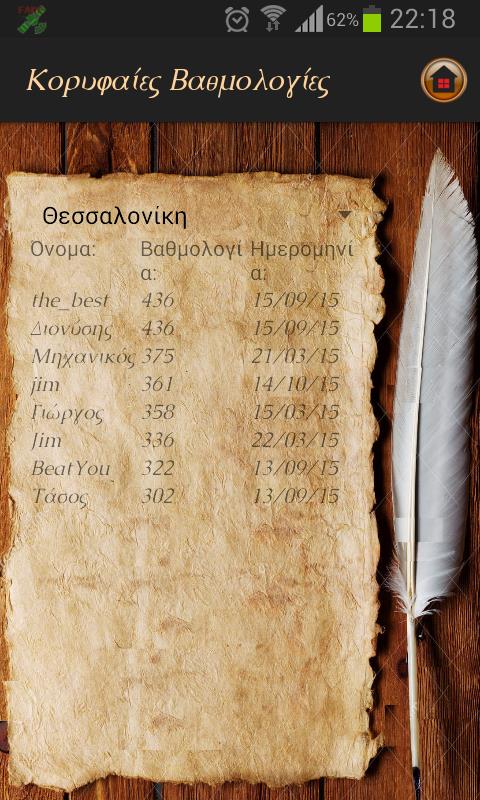 FAKE
62% 22:18
Κορυφαίες Βαθμολογίες
Θεσσαλονίκη
Όνομα: Βαθμολογί Ημερομηνί
α: α:
the_best 436 15/09/15
Διονύσης 436 15/09/15
Μηχανικός 375 21/03/15
jim 361 14/10/15
Γιώργος 358 15/03/15
Jim 336 22/03/15
BeatYou 322 13/09/15
Τάσος 302 13/09/15